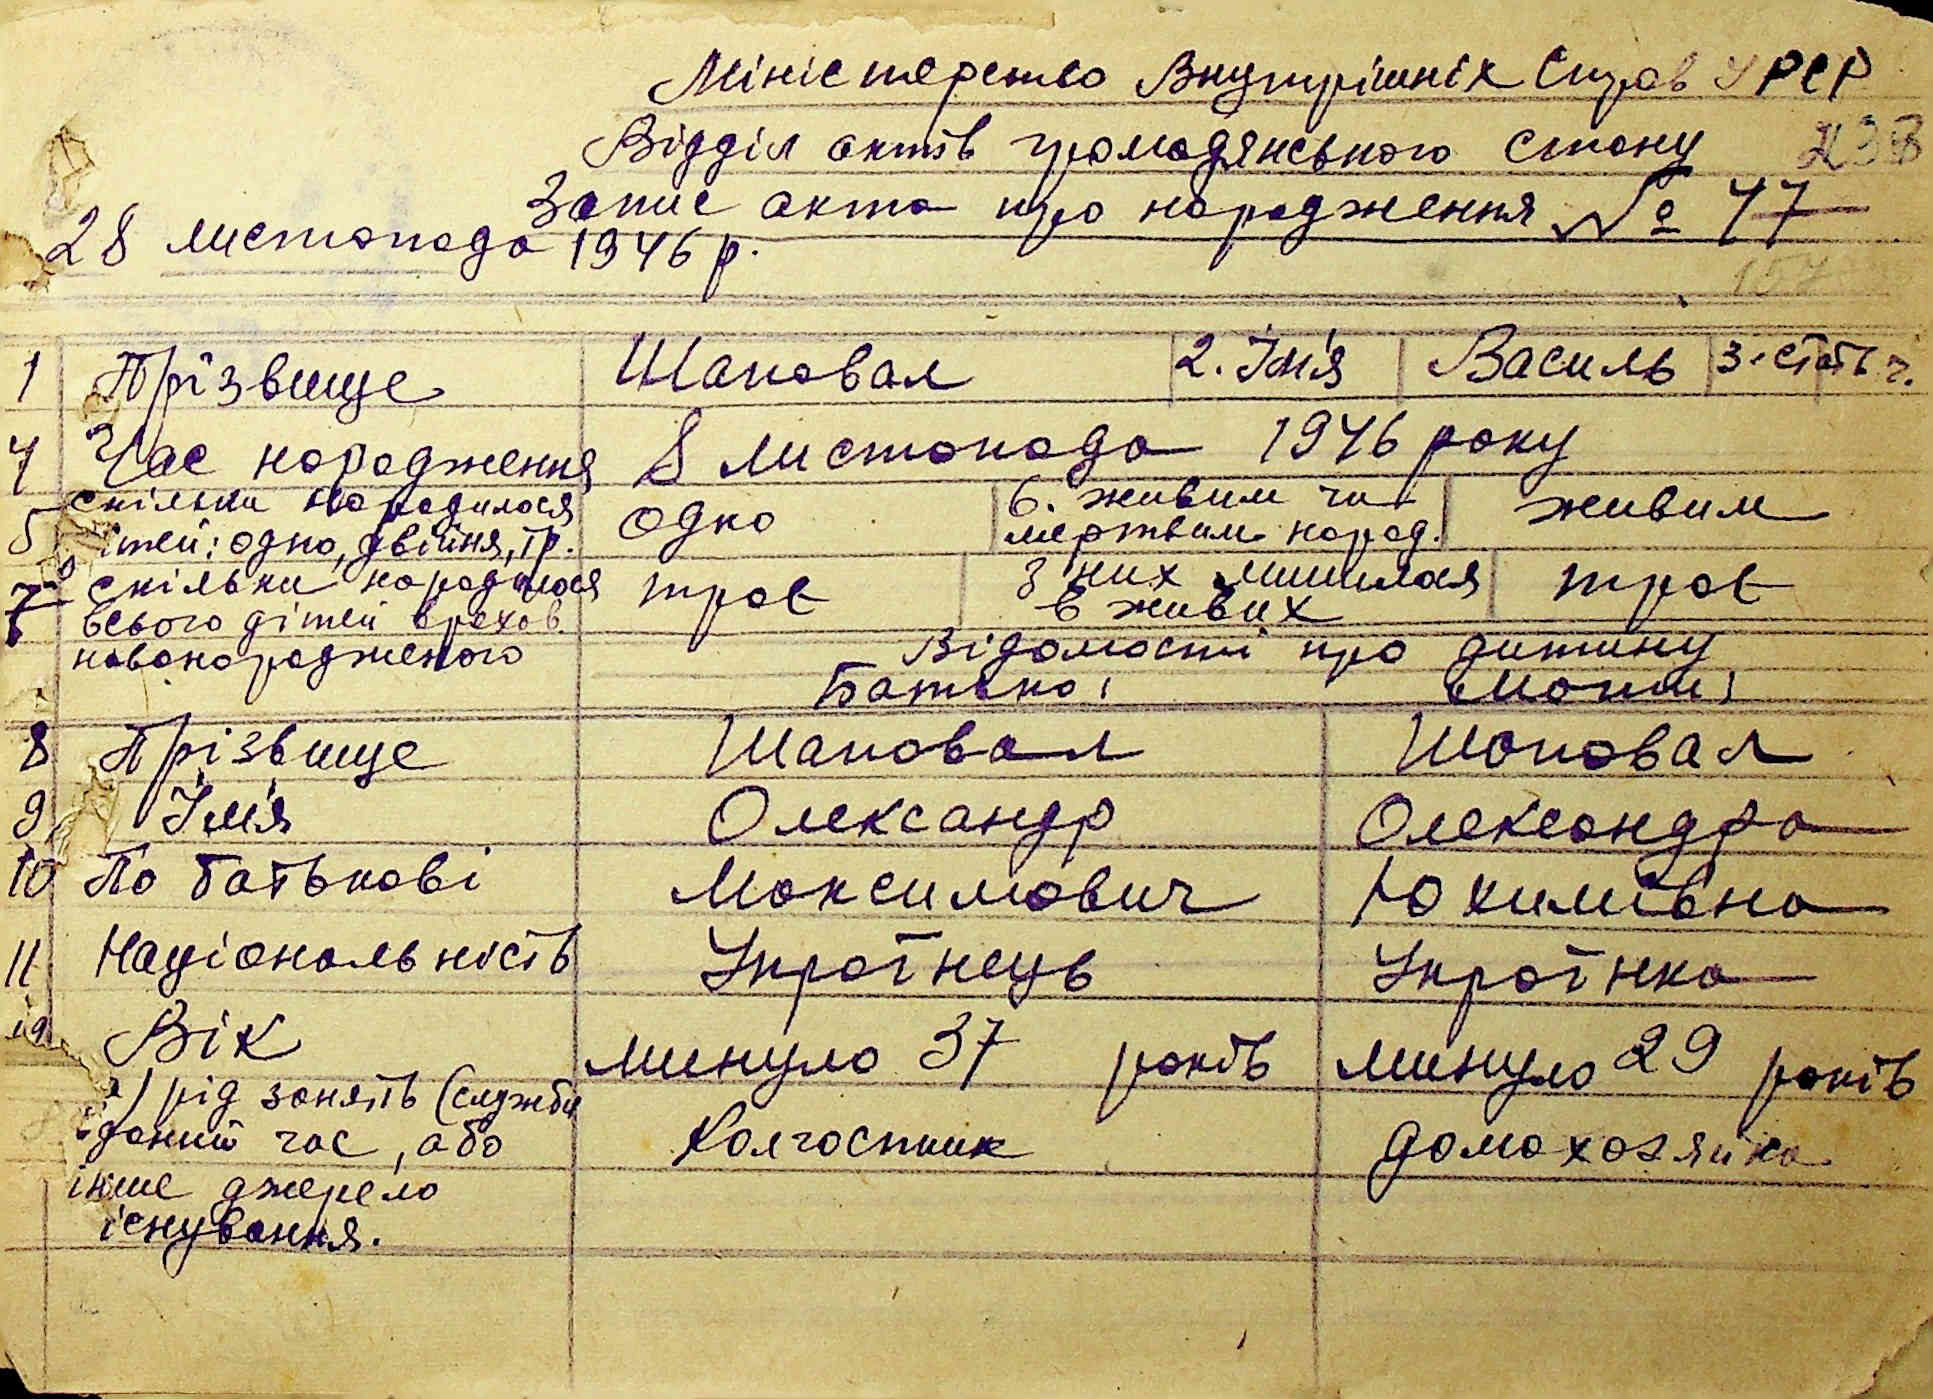 Міністерство Внутрішніх Справ УРСР
Відділ актів громадянського стану
Запис акта про народження № 47
28 листопада 1946 р.
157
1 Прізвище Шаповал 2. Імя Василь 3. стать ч.
4 Час народження 8 листопада 1946 року
5 скільки народилося одно 6. живим чи живим
ітей: одно, двійня, тр. мертвим народ.
7 скільки народилося троє З них лишилося троє
всього дітей врахов. в живих
новонародженого Відомості про дитину
Батько: Мати:
8 Прізвище Шаповал Шаповал
9 Імя Олександр Олександра
10 По батькові Максимович Юхимівна
11 Національність Українець Українка
Вік минуло 37 років минуло 29 років
а) рід занять (служби Колгоспник домохозяйка
даний час, або
інше джерело
існування.